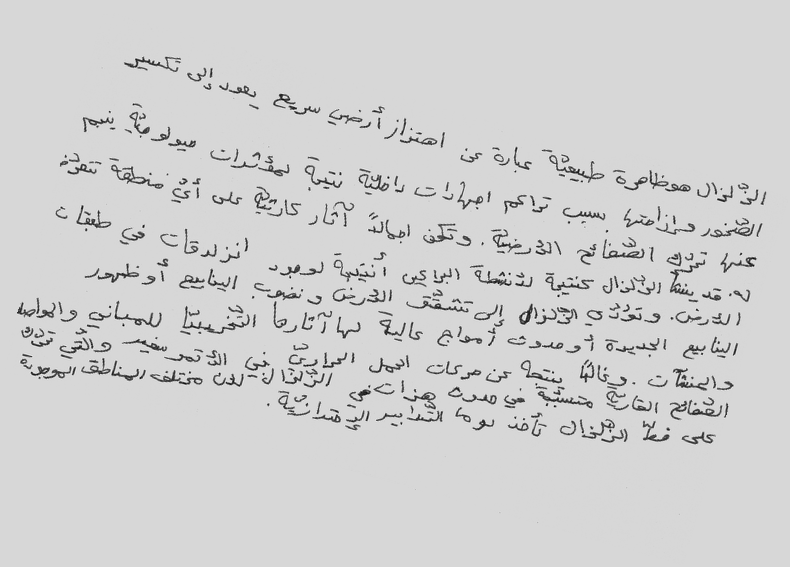 الزّلزال هو ظاهرة طبيعيّة عبارة عن اهتزاز أرضي سريع يعود إلى تكسير
الصّخور وإزاحتها بسبب تراكم اجهادات داخليّة نتيجة لمؤشرات جيولوجيّة ينجم
عنها تحرّك الصّفائح الأرضيّة. وتكون اجمالاً آثار كارثيّة على أيّ منطقة تتعرّض
له. قد ينشأ الزلزال كنتيجة لأنشطة البراكين أنتيجة لوجود انزلاقات في طبقات
الأرض. وتؤدّي الزّلزال إلى تشقّق الأرض ونضوب الينابيع أو ظهور
الينابيع الجديدة أو حدوث أمواج عالية لها آثارها التّخريبيّة للمباني والمواصلا
والمنشآت. وغالبًا ينتجه عن حركات الحمل الحراريّ في الأتموسفير والّتي تحرّك
الصّفائح القاريّة متسبّبة في حدوث هزات في الزّلزال. لدن مختلف المناطق الموجودة
على خطّ الزلزال تأخذ دوما التّدابير الإحترازيّة.